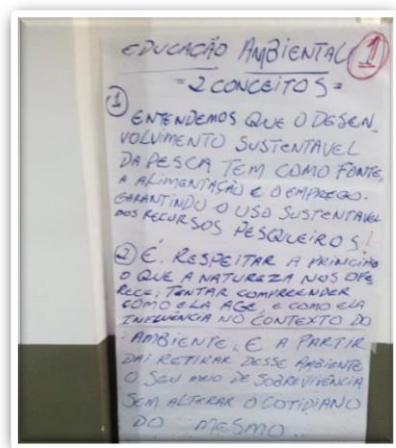 EDUCAÇÃO AMBIENTAL 1
= 2 CONCEITOS =
1 ENTENDEMOS QUE O DESEN_
VOLVIMENTO SUSTENTAVEL
DA PESCA TEM COMO FONTE,
A ALIMENTAÇÃO E O EMPREGO.
GARANTINDO O USO SUSTENTAVEL
DOS RECURSOS PESQUEIROS!
2 É. RESPEITAR A PRINCIPIO
O QUE A NATUREZA NOS OFE
RECE; TENTAR COMPREENDER
COMO ELA AGE, E COMO ELA
INFLUÊNCIA NO CONTEXTO DO
AMBIENTE, E A PARTIR
DAI RETIRAR DESSE AMBIENTE
O SEU MEIO DE SOBREVIVÊNCIA
SEM ALTERAR O COTIDIANO
DO MESMO..